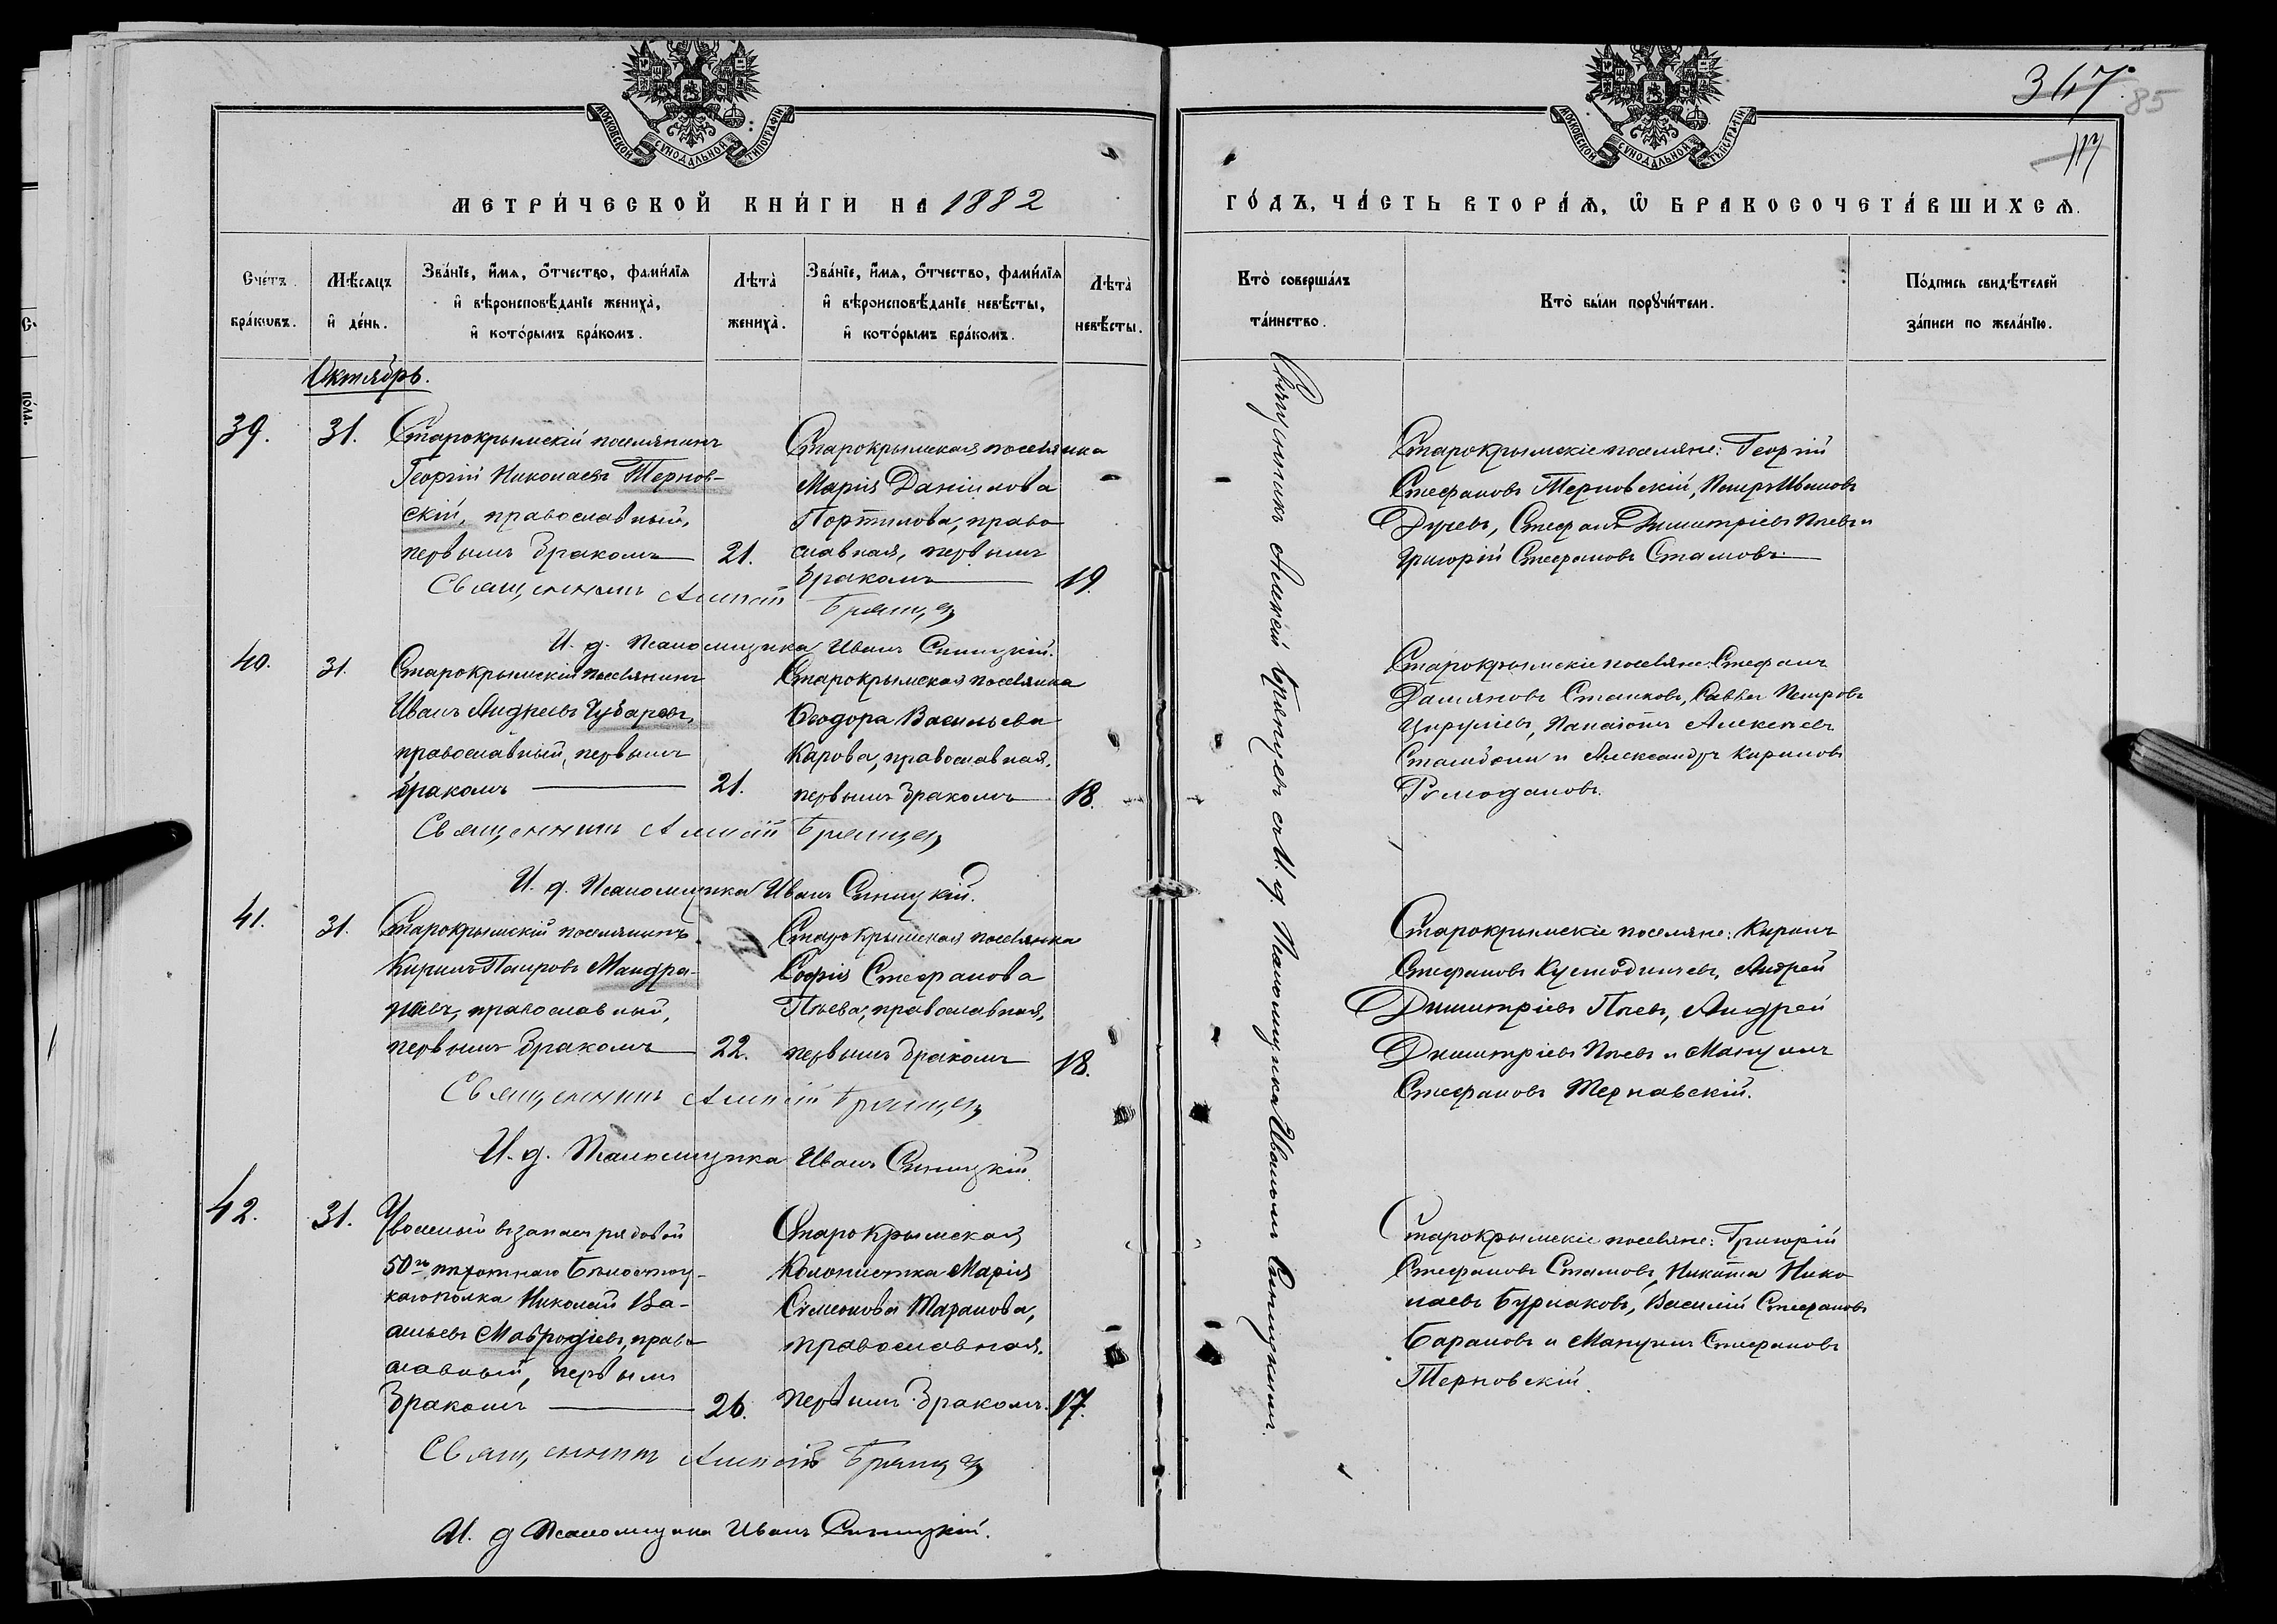 МОСКОВСКОЙ СѴНОДАЛЬНОЙ ТИПОГРАФІИ
МЕТРИ́ЧЕСКОЙ КНИ́ГИ НА 1882
Сче́тъ бра́кѡвъ.
Мѣ́сяцъ и҆ де́нь.
Зва́нїе, и҆́мѧ, ѻ҆́тчество, фами́лїѧ
и҆ вѣроисповѣ́данїе жениха̀,
и҆ кото́рымъ бра́комъ.
Лѣта̀ жениха̀.
Зва́нїе, и҆́мѧ, ѻ҆́тчество, фами́лїѧ
и҆ вѣроисповѣ́данїе невѣ́сты,
и҆ кото́рымъ бра́комъ.
Лѣта̀ невѣ́сты.
Октябрь.
39.
31.
Старокрымскій поселянинъ
Георгій Николаевъ Тернов-
скій, православный,
первымъ бракомъ
21.
Старокрымская поселянка
Марія Даніилова
Портнова, право
славная, первымъ
бракомъ
19.
Священникъ Алексій Брянцевъ
И. д. Псаломщика Иванъ Синицкій.
40.
31.
Старокрымскій поселянинъ
Иванъ Андреевъ Чубаровъ,
православный, первымъ
бракомъ
21.
Старокрымская поселянка
Ѳеодора Васильева
Карова, православная,
первымъ бракомъ
18.
Священникъ Алексій Брянцевъ
И. д. Псаломщика Иванъ Синицкій.
41.
31.
Старокрымскій поселянинъ
Кирилъ Петровъ Мандра-
жіевъ, православный,
первымъ бракомъ
22.
Старокрымская поселянка
Софія Стефанова
Пѣева, православная,
первымъ бракомъ
18.
Священникъ Алексій Брянцевъ
И. д. Псаломщика Иванъ Синицкій.
42.
31.
Уволеный въ запасъ рядовой
50го пѣхотнаго Бѣлостоц-
каго полка Николай Ва-
сильевъ Мавродіевъ, право
славный, первымъ
бракомъ
26.
Старокрымская
Колонистка Марія
Симеонова Таранова,
православная,
первымъ бракомъ.
17.
Священникъ Алексій Брянцевъ
И. д Псаломщика Иванъ Синицкій.
367.
85
МОСКОВСКОЙ СѴНОДАЛЬНОЙ ТИПОГРАФІИ
ГО́ДЪ, ЧА́СТЬ ВТОРА́Ѧ, Ѽ БРАКОСОЧЕТА́ВШИХСѦ.
Кто̀ соверша́лъ
та́инство.
Кто̀ бы́ли порꙋчи́тели.
По́дпись свидѣ́телей
за́писи по жела́нїю.
Священникъ Алексій Брянцевъ съ И. д. Псаломщика Иваномъ Синицкимъ.
Старокрымскіе поселяне: Георгій
Стефановъ Терновскій, Петръ Ивановъ
Дучевъ, Стефанъ Димитріевъ Пѣевъ и
Григорій Стефановъ Стамовъ
Старокрымскіе поселяне: Стефанъ
Даміяновъ Станковъ, Савва Петровъ
Панаіотъ Алексѣевъ
и Александръ Кириловъ
Ромодановъ.
Старокрымскіе поселяне: Кирилъ
Стефановъ Андрей
Димитріевъ Пѣевъ, Андрей
Димитріевъ Пѣевъ и Мануилъ
Стефановъ Терновскій.
Старокрымскіе поселяне: Григорій
Стефановъ Стамовъ, Никита Нико
лаевъ Бурлаковъ, Василій Стефановъ
Барановъ и Мануилъ Стефановъ
Терновскій.